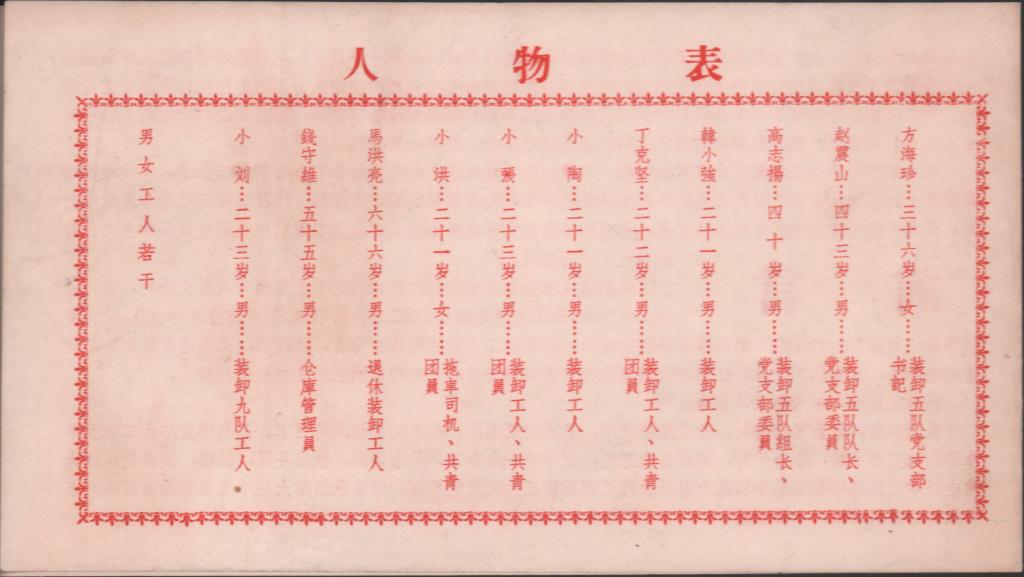 人物表
方海珍…三十六岁 女……装卸五队党支部
书記
赵震山…四十三岁…男……装卸五队队长、
党支部委員
高志揚…四十 岁…男……装卸五队組长、
党支部委員
韓小強…二十一岁…男……装卸工人
丁克坚…二十二岁…男……装卸工人、共青
团員
小 陶…二十一岁…男……装卸工人
小 …二十三岁…男……装卸工人、共青
团員
小 洪…二十一岁…女……拖車司机、共青
团員
馬洪亮…六十六岁…男……退休装卸工人
錢守維…五十五岁…男……仓庫管理員
小 刘…二十三岁…男……装卸九队工人
男女工人若干